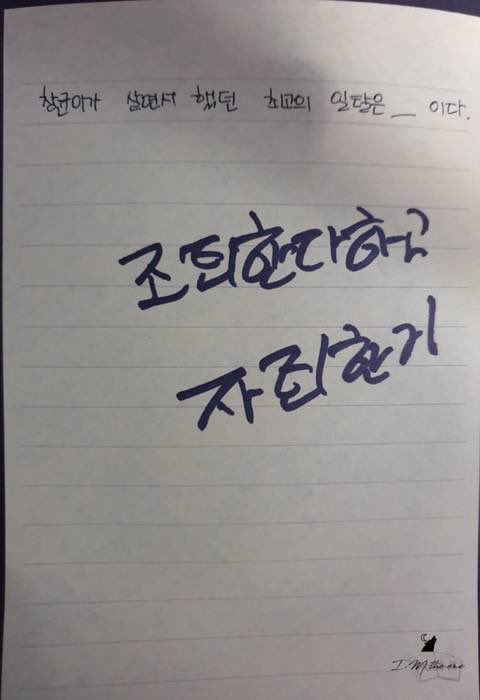 창균이가 살면서 했던 최고의 일탈은 __ 이다.
조퇴한다하고
자퇴한기
I.M the one